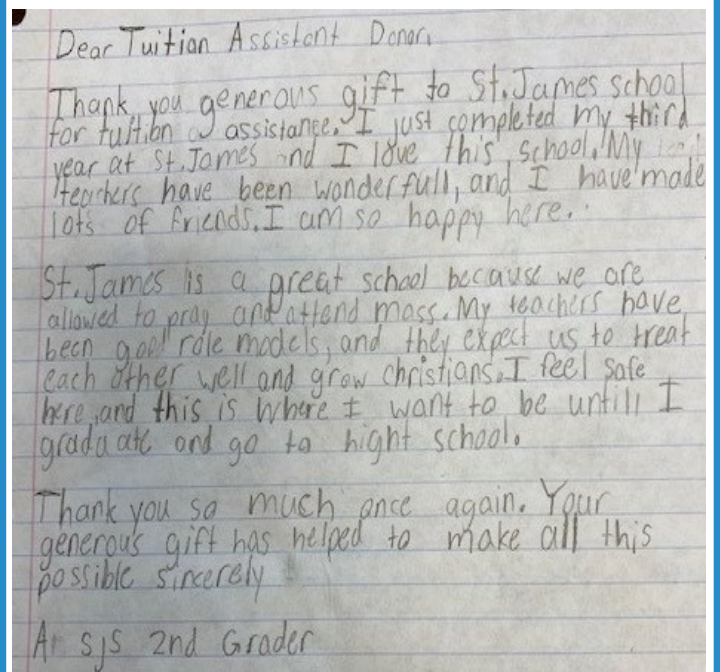 Dear Tuition Assistant Donor,
Thank you generous gift to St. James school
for tuition assistance. I just completed my third
year at St. James and I love this school. My
teachers have been wonderfull, and I have made
lots of friends. I am so happy here.
St. James is a great school because we are
allowed to pray and attend mass. My teachers have
been good role models, and they expect us to treat
each other well and grow christians. I feel safe
here, and this is where I want to be untill I
graduate and go to hight school.
Thank you so much once again. Your
generous gift has helped to make all this
possible sincerely
A SJS 2nd Grader